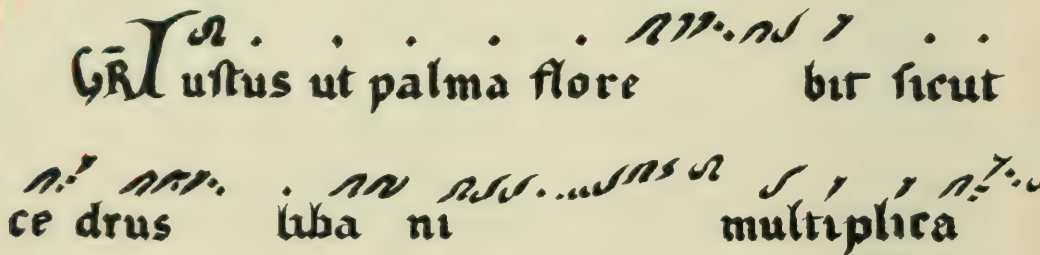 GR̄ Iustus ut palma flore bit sicut
ce drus liba ni multiplica